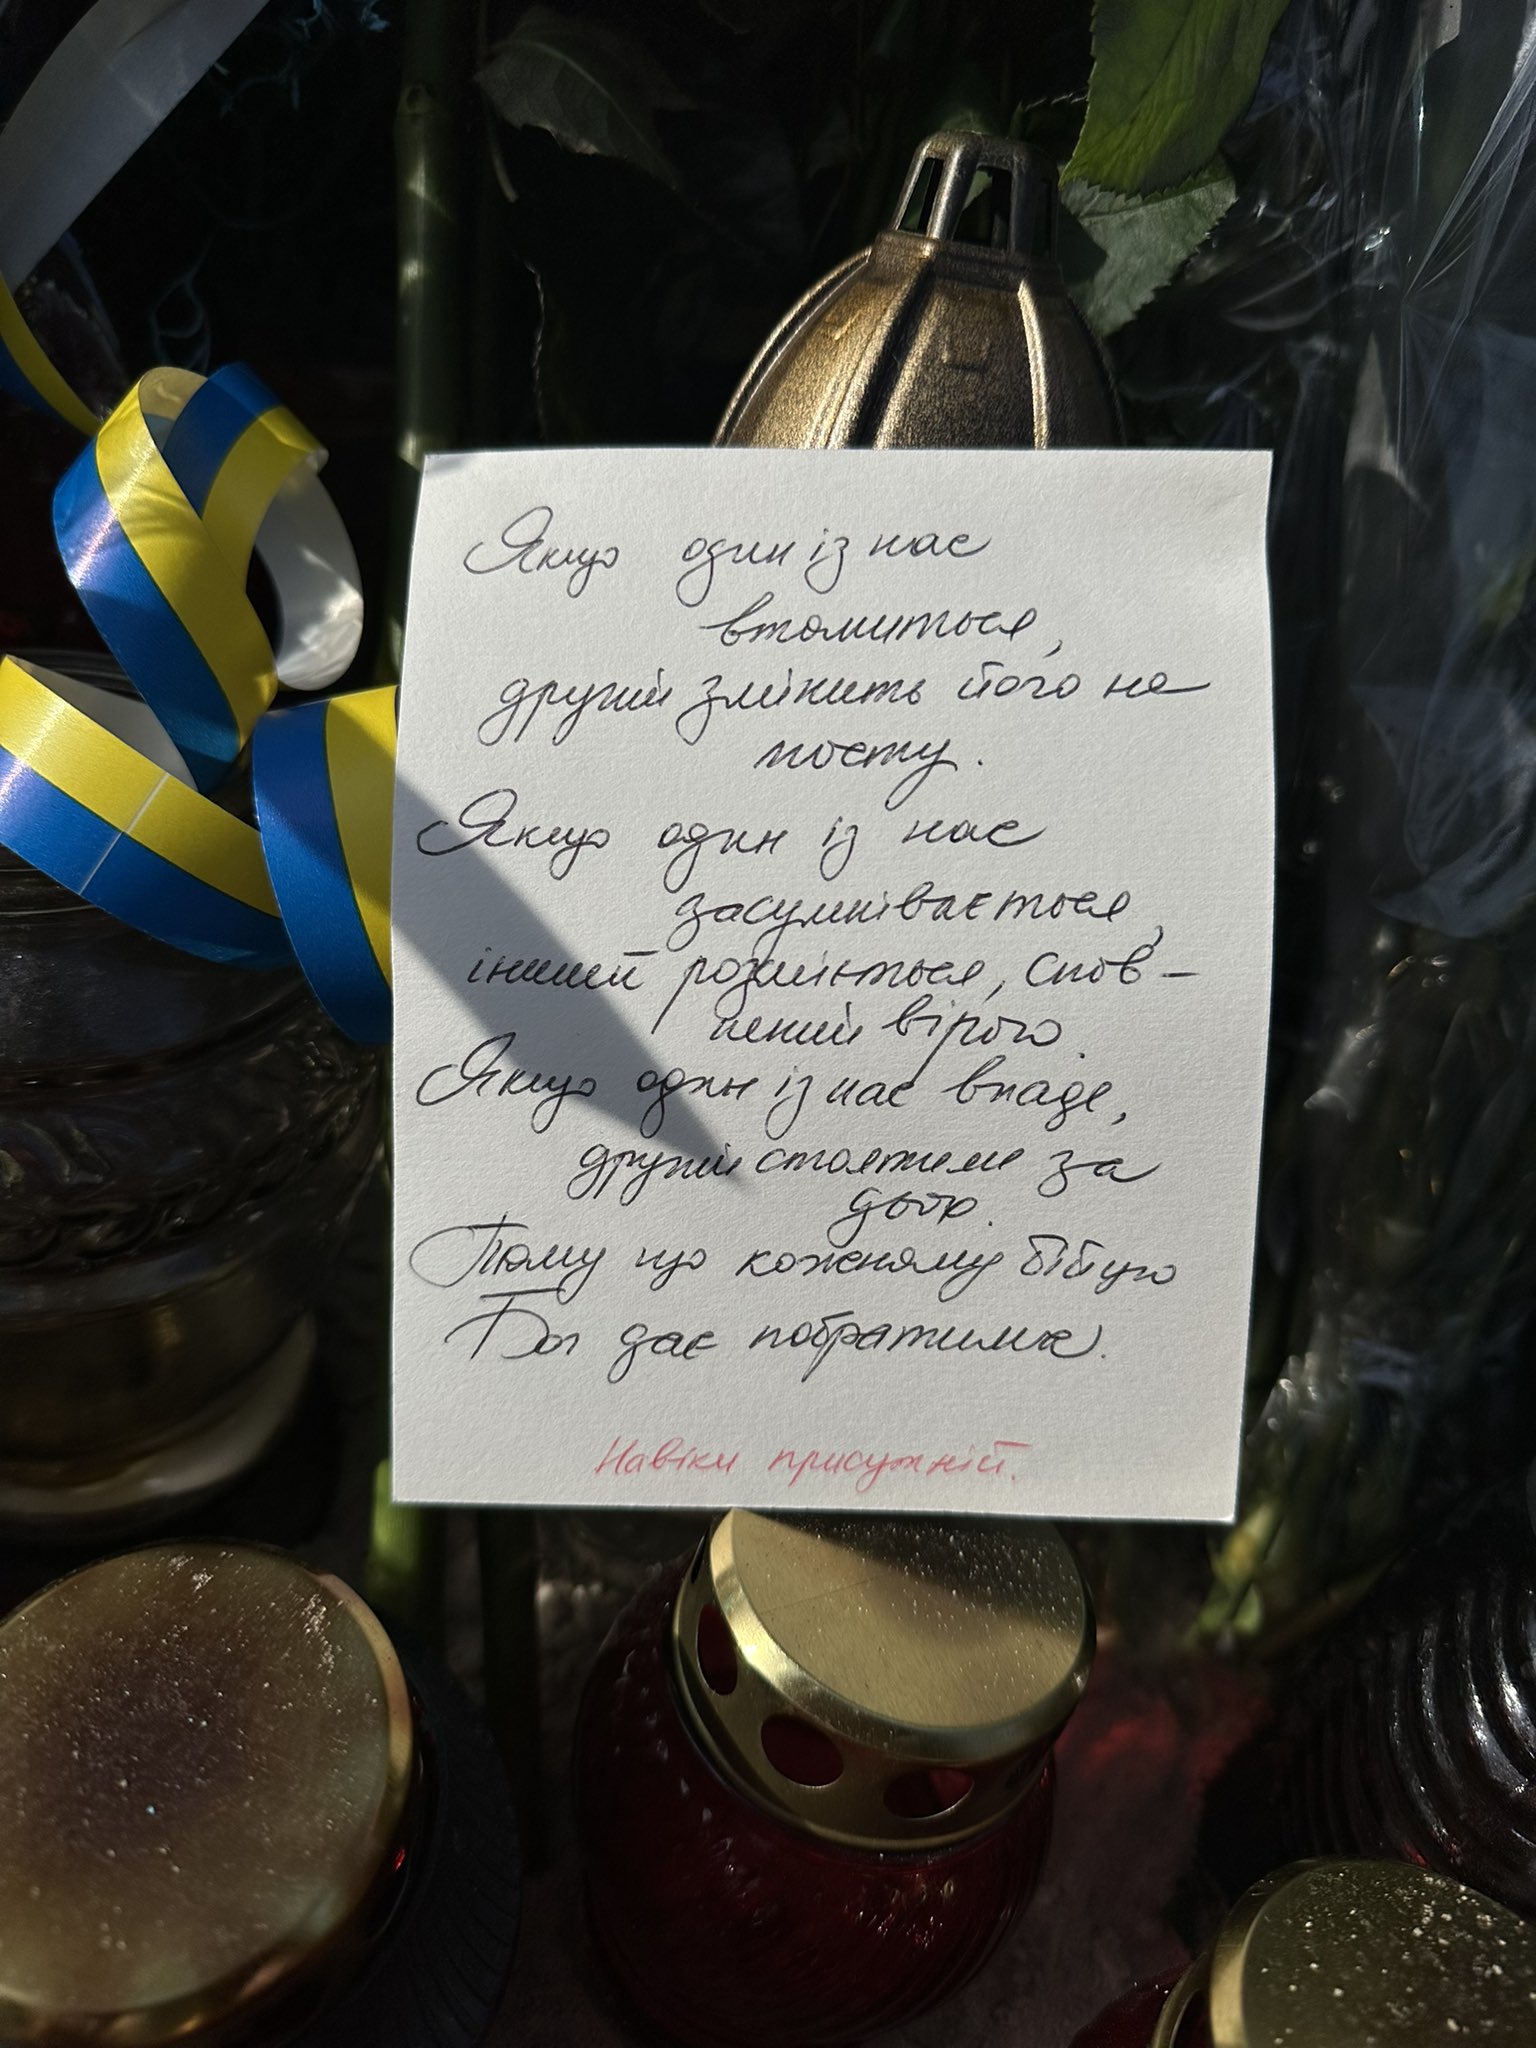 Якщо один із нас
втомиться,
другий змінить його на
посту.
Якщо один із нас
засумнівається,
інший розміється, спов-
нений вірою.
Якщо один із нас впаде,
другий стоятиме за
двох.
Тому що кожному бійцю
Бог дає побратима.
Навіки присутній.